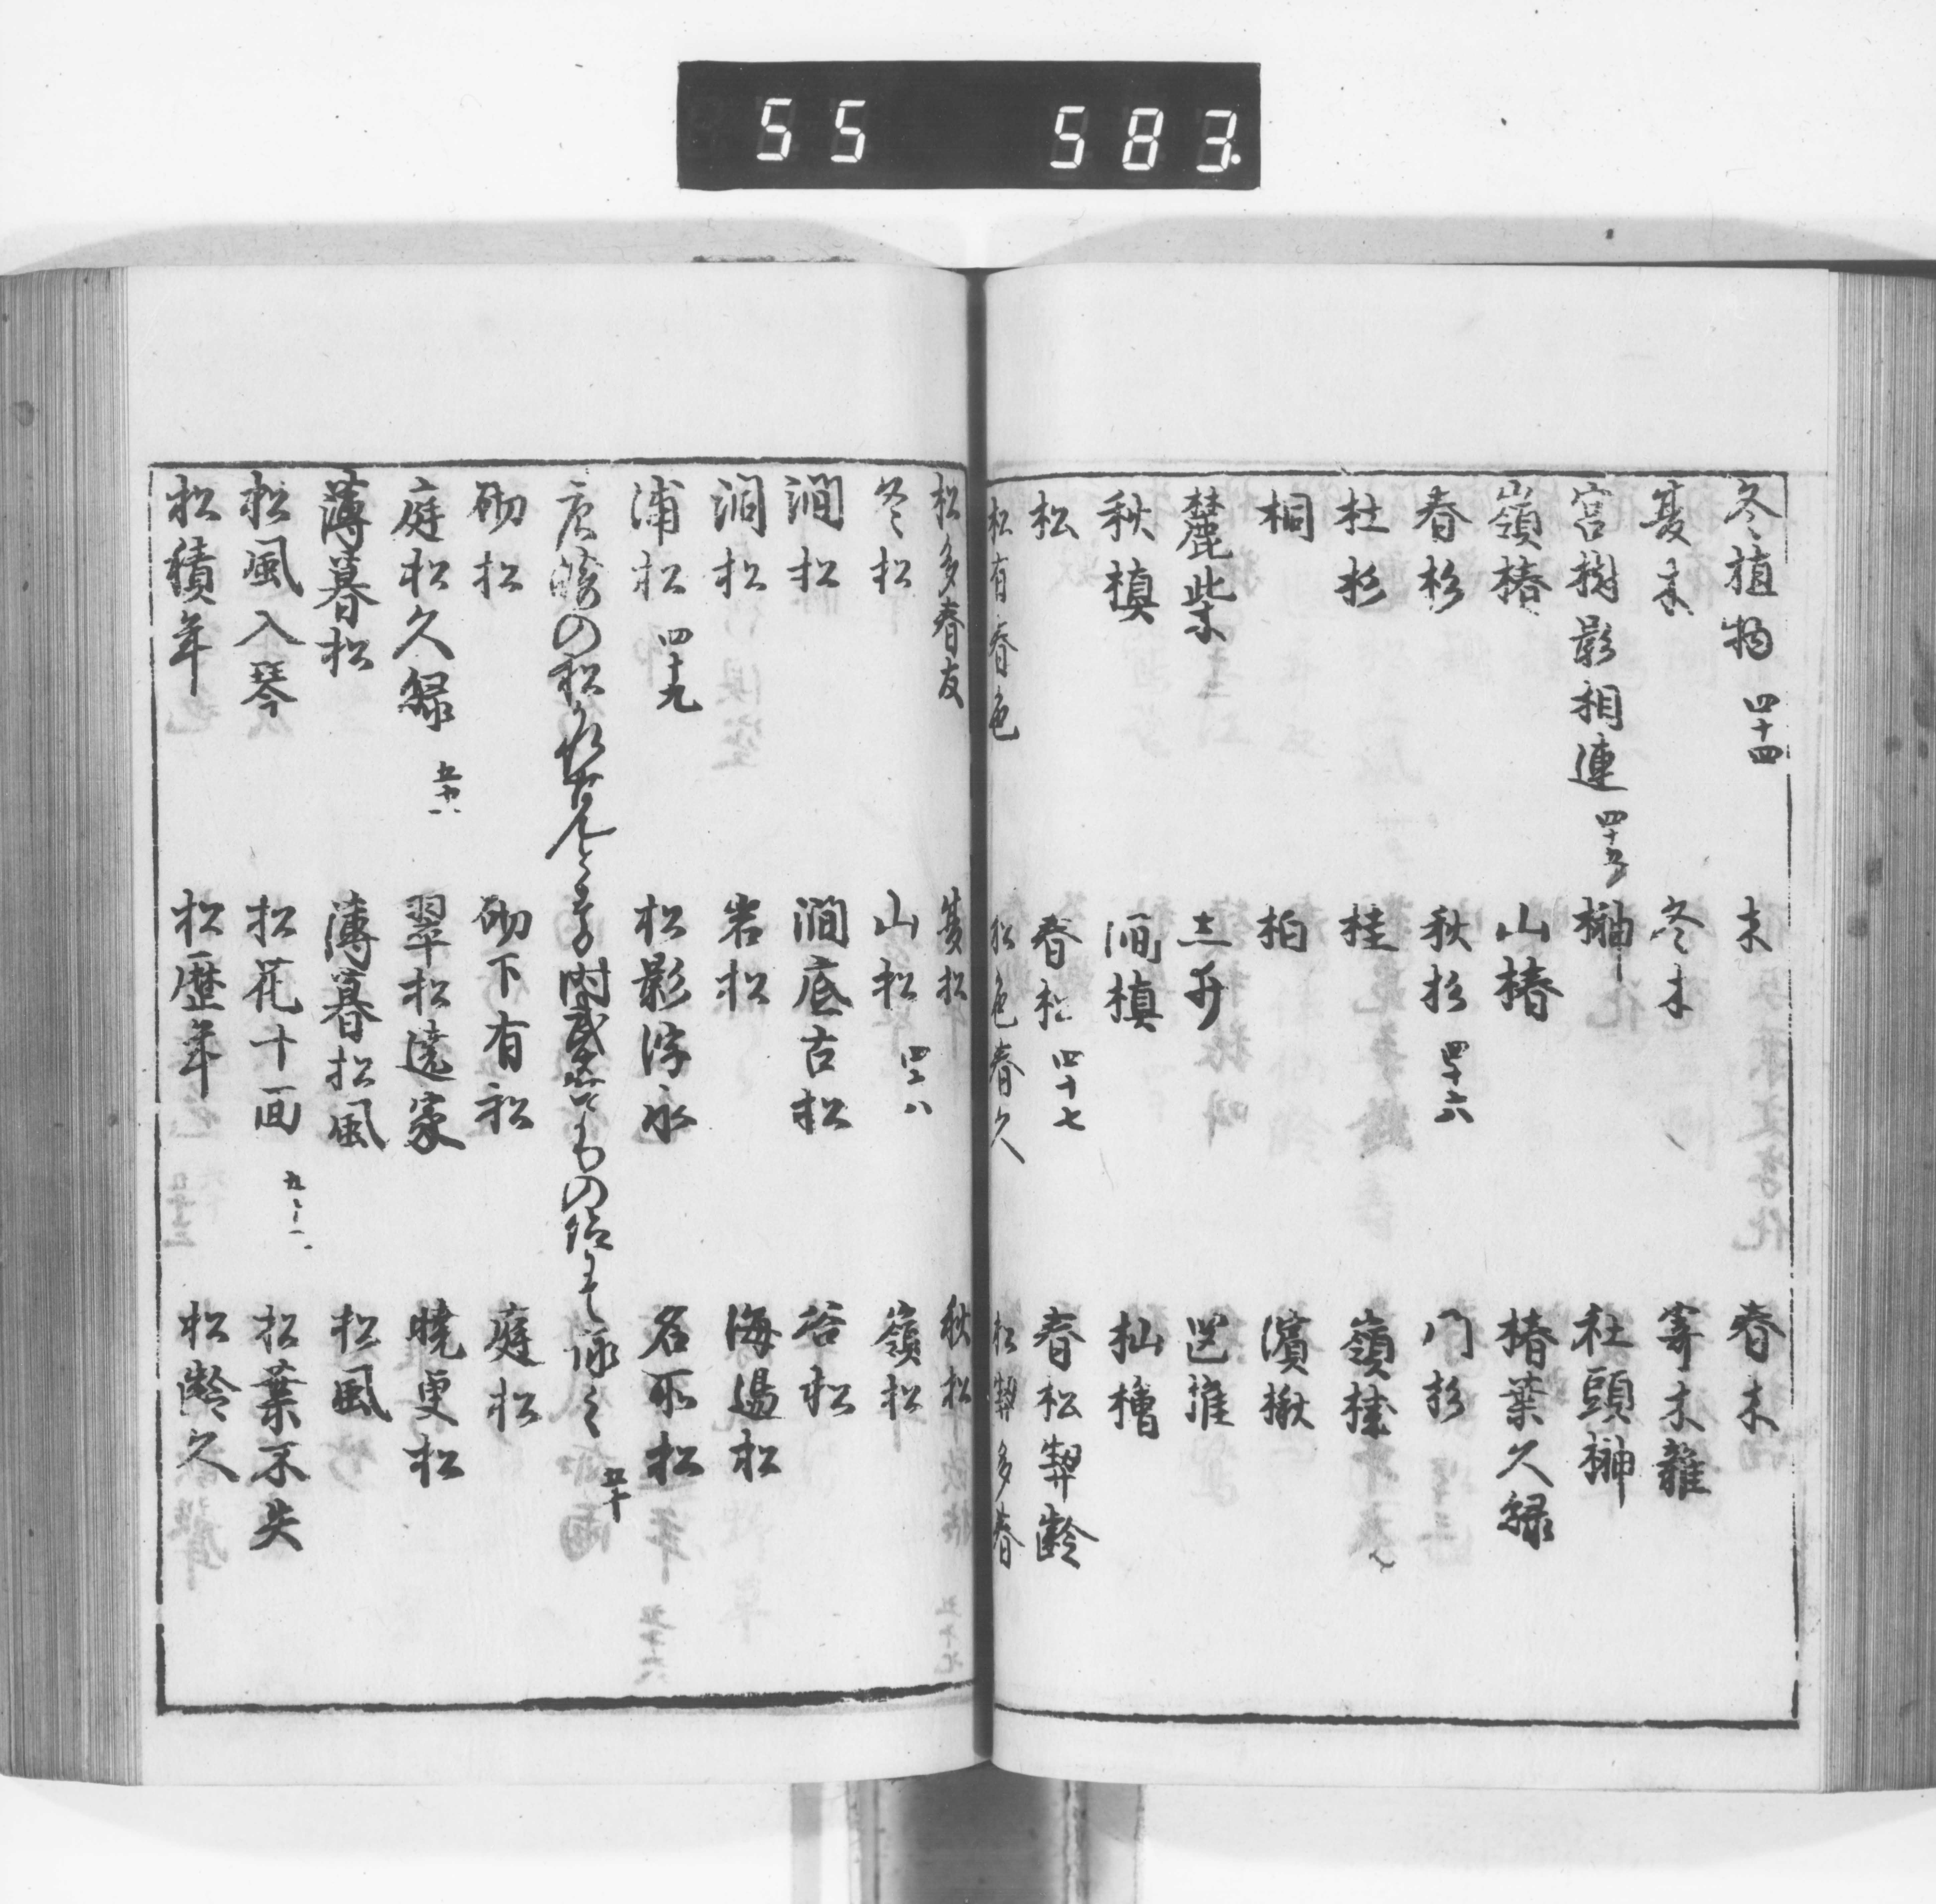 55 583.
冬植物 四十四 木 春木
夏木 冬木 寄木雑
宮樹影相連 四十五 榊 社頭榊
嶺椿 山椿 椿葉久緑
春杉 秋杉 四十六 門杉
杜杉 桂 嶺
桐 柏 濱楸
麓柴 椎
秋槙 澗槙 檜
松 春松 四十七 春松契齢
松有春色 松色春久 松契多春
松多春友 夏松 秋松
冬松 山松 四十八 嶺松
澗松 澗底古松 谷松
澗松 岩松 海邊松
浦松 四十九 松影浮水 名所松
唐崎の松 五十
砌松 砌下有松 庭松
庭松久緑 翠松遶家 暁更松
薄暮松 薄暮松風 松風
松風入琴 松花十廻 松葉不失
松積年 松歴年 松齢久